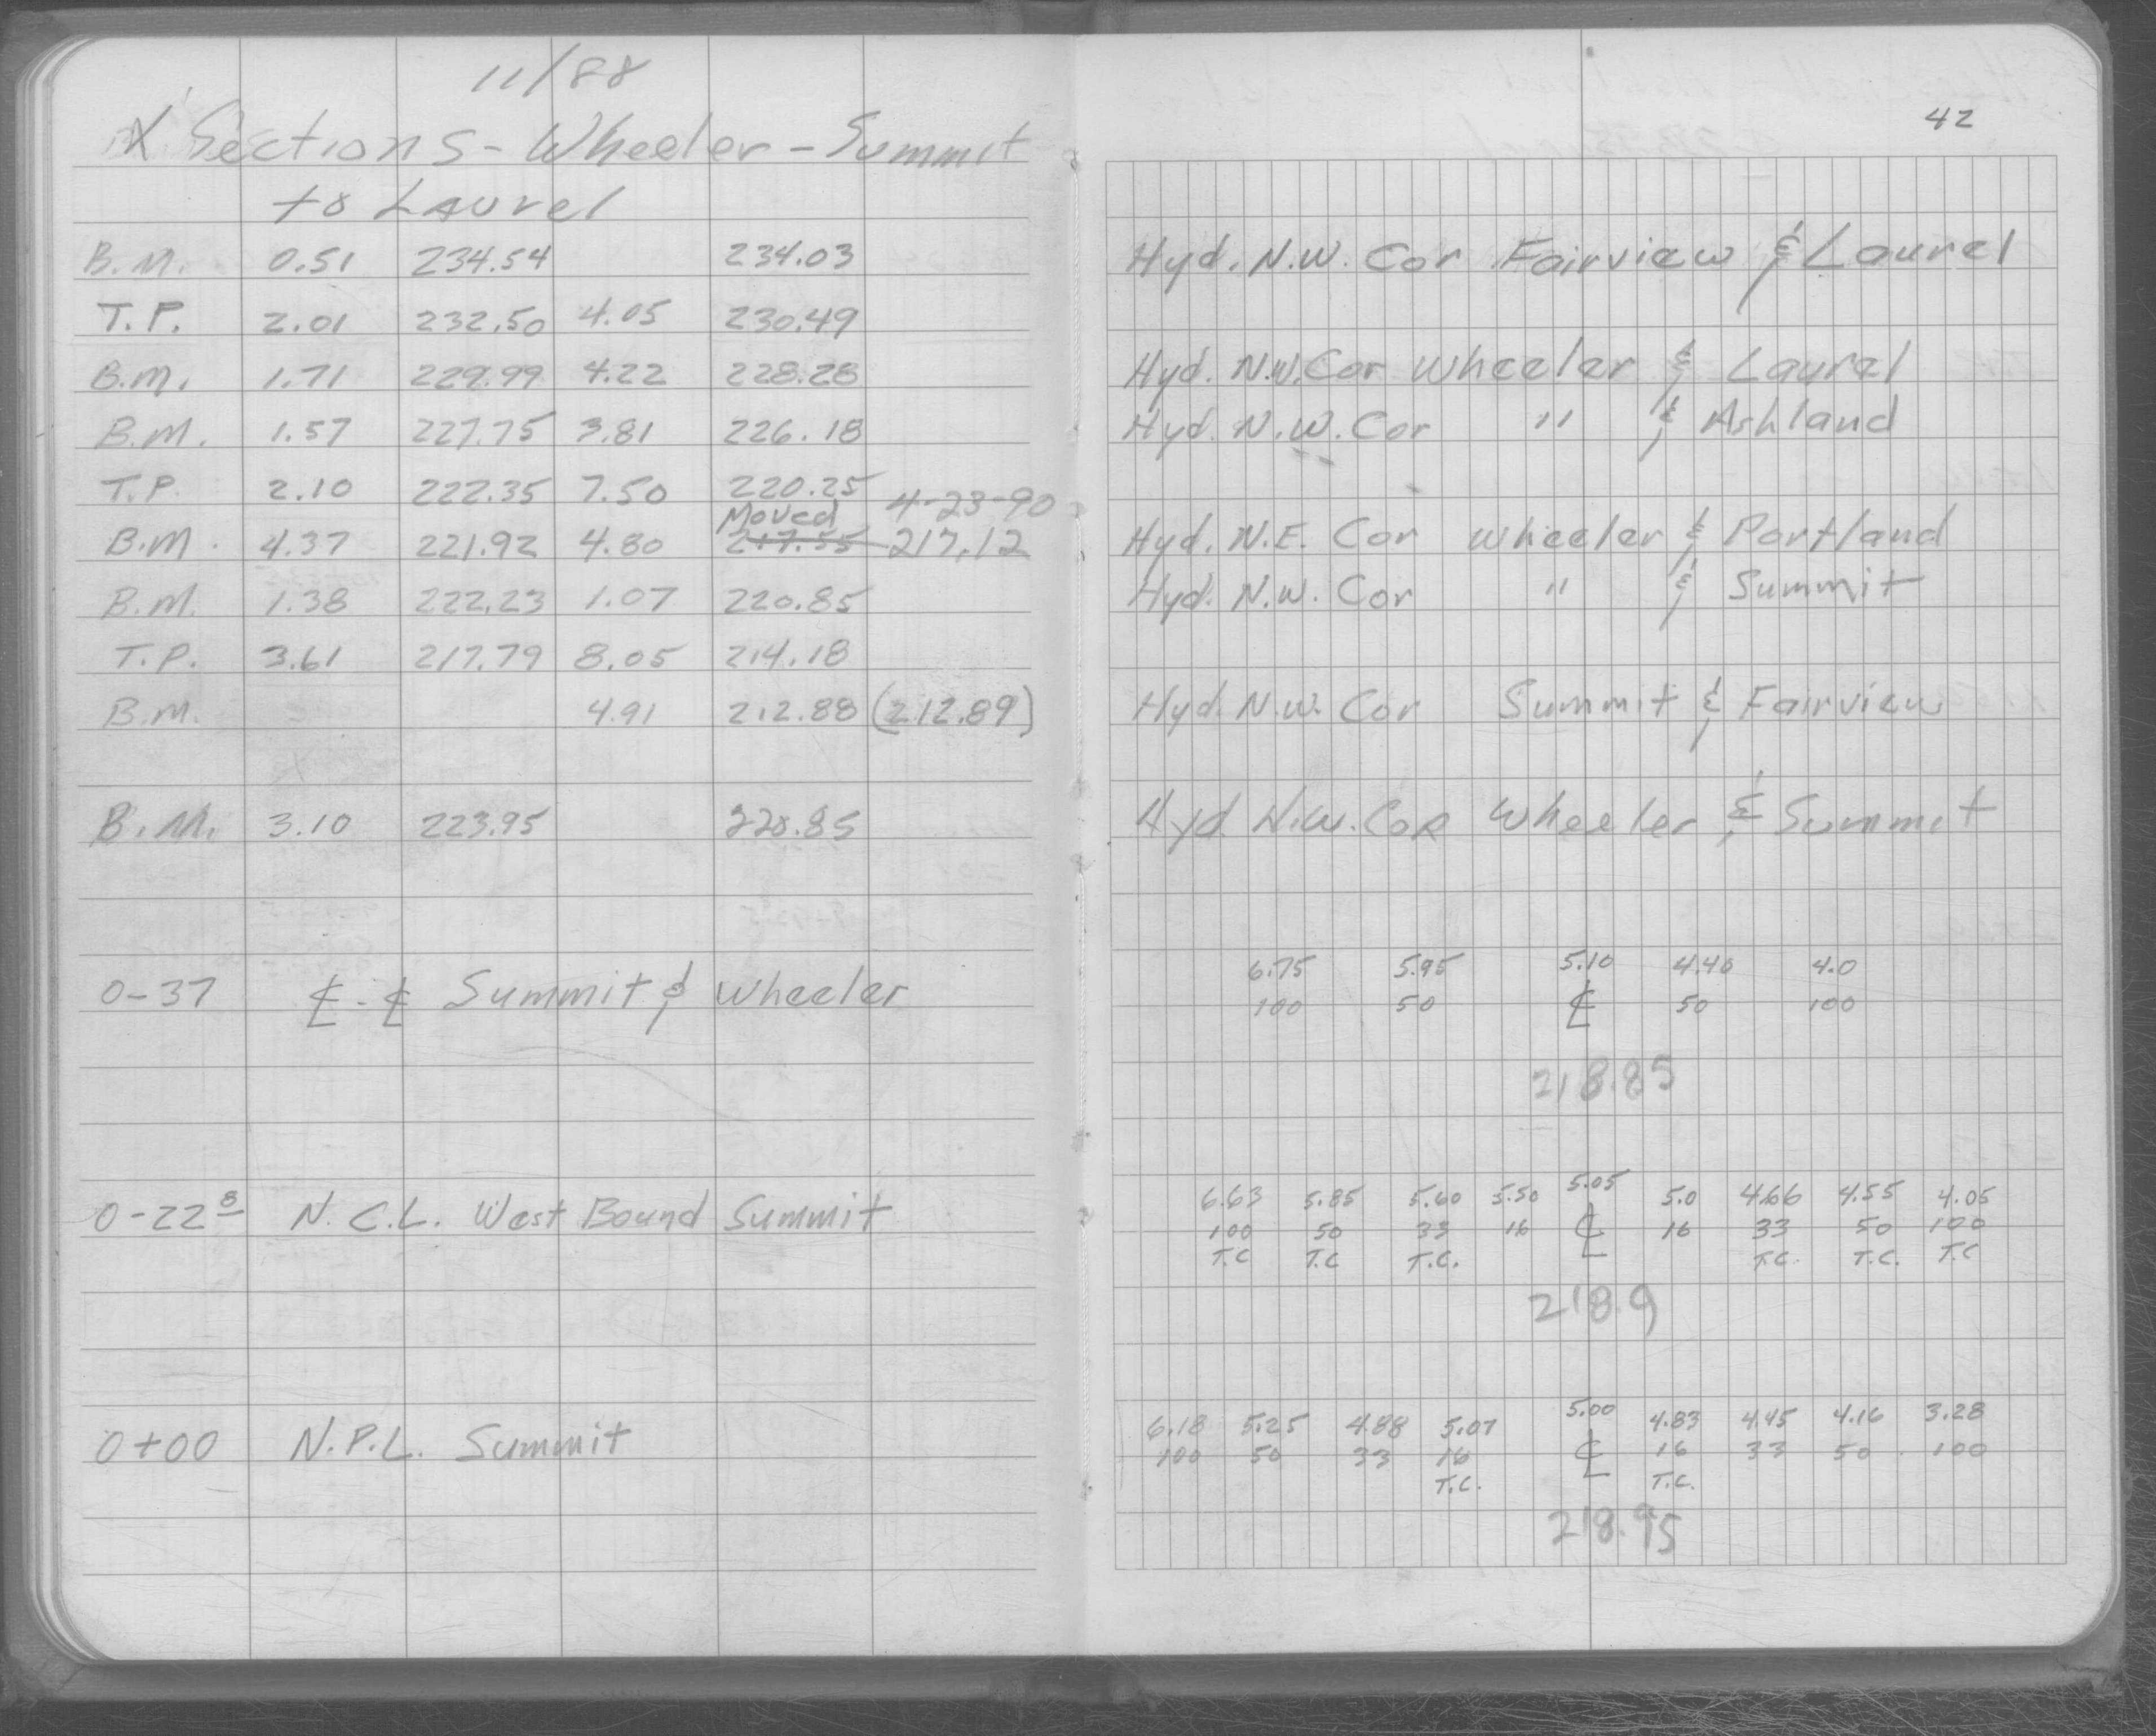 11/88
X Sections - Wheeler - Summit
to Laurel
B.M. 0.51 234.54 234.03
T.P. 2.01 232.50 4.05 230.49
B.M. 1.71 229.99 4.22 228.28
B.M. 1.57 227.75 3.81 226.18
T.P. 2.10 222.35 7.50 220.25 4-23-90
Moved
B.M. 4.37 221.92 4.80 217.55 217.12
B.M. 1.38 222.23 1.07 220.85
T.P. 3.61 217.79 8.05 214.18
B.M. 4.91 212.88 (212.89)
B.M. 3.10 223.95 220.85
0-37 ℄ - ℄ Summit & Wheeler
0-22⁸ N.C.L. West Bound Summit
0+00 N.P.L. Summit
42
Hyd. N.W. Cor Fairview & Laurel
Hyd. N.W. Cor Wheeler & Laurel
Hyd. N.W. Cor " & Ashland
Hyd. N.E. Cor Wheeler & Portland
Hyd. N.W. Cor " & Summit
Hyd. N.W. Cor Summit & Fairview
Hyd N.W. Cor Wheeler & Summit
6.75 5.95 5.10 4.40 4.0
100 50 ℄ 50 100
218.85
6.63 5.85 5.60 5.50 5.05 5.0 4.66 4.55 4.05
100 50 33 16 ℄ 16 33 50 100
T.C T.C T.C. T.C. T.C. T.C
218.9
6.18 5.25 4.88 5.07 5.00 4.83 4.45 4.16 3.28
100 50 33 16 ℄ 16 33 50 100
T.C. T.C.
218.95